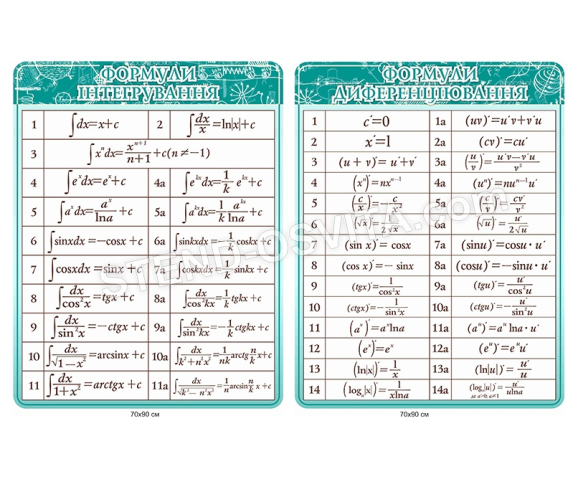 ФОРМУЛИ
ІНТЕГРУВАННЯ
1 ∫dx=x+c 2 ∫dx/x=ln|x|+c
3 ∫xⁿdx=xⁿ⁺¹/n+1+c(n≠−1)
4 ∫eˣdx=eˣ+c 4a ∫eᵏˣdx=1/k eᵏˣ+c
5 ∫aˣdx=aˣ/lna+c 5a ∫aᵏˣdx=1/k aᵏˣ/lna+c
6 ∫sinxdx=−cosx+c 6a ∫sinkxdx=−1/k coskx+c
7 ∫cosxdx=sinx+c 7a ∫coskxdx=1/k sinkx+c
8 ∫dx/cos²x=tgx+c 8a ∫dx/cos²kx=1/k tgkx+c
9 ∫dx/sin²x=−ctgx+c 9a ∫dx/sin²kx=−1/k ctgkx+c
10 ∫dx/√1−x²=arcsinx+c 10a ∫dx/k²+n²x²=1/nk arctg n/k x+c
11 ∫dx/1+x²=arctgx+c 11a ∫dx/√k²−n²x²=1/n arcsin n/k x+c
70x90 см
ФОРМУЛИ
ДИФЕРЕНЦІЮВАННЯ
1 c′=0 1a (uv)′=u′v+v′u
2 x′=1 2a (cv)′=cu′
3 (u+v)′=u′+v′ 3a (u/v)′=u′v−v′u/v²
4 (xⁿ)′=nxⁿ⁻¹ 4a (uⁿ)′=nuⁿ⁻¹u′
5 (c/x)′=−c/x² 5a (c/v)′=−cv′/v²
6 (√x)′=1/2√x 6a (√u)′=u′/2√u
7 (sin x)′=cosx 7a (sinu)′=cosu·u′
8 (cos x)′=−sinx 8a (cosu)′=−sinu·u′
9 (tgx)′=1/cos²x 9a (tgu)′=u′/cos²u
10 (ctgx)′=−1/sin²x 10a (ctgu)′=−u′/sin²u
11 (aˣ)′=aˣlna 11a (aᵘ)′=aᵘlna·u′
12 (eˣ)′=eˣ 12a (eᵘ)′=eᵘu′
13 (ln|x|)′=1/x 13a (ln|u|)′=u′/u
14 (logₐ|x|)′=1/xlna 14a (logₐ|u|)′=u′/ulna
70x90 см
STEND-OSVITA.com